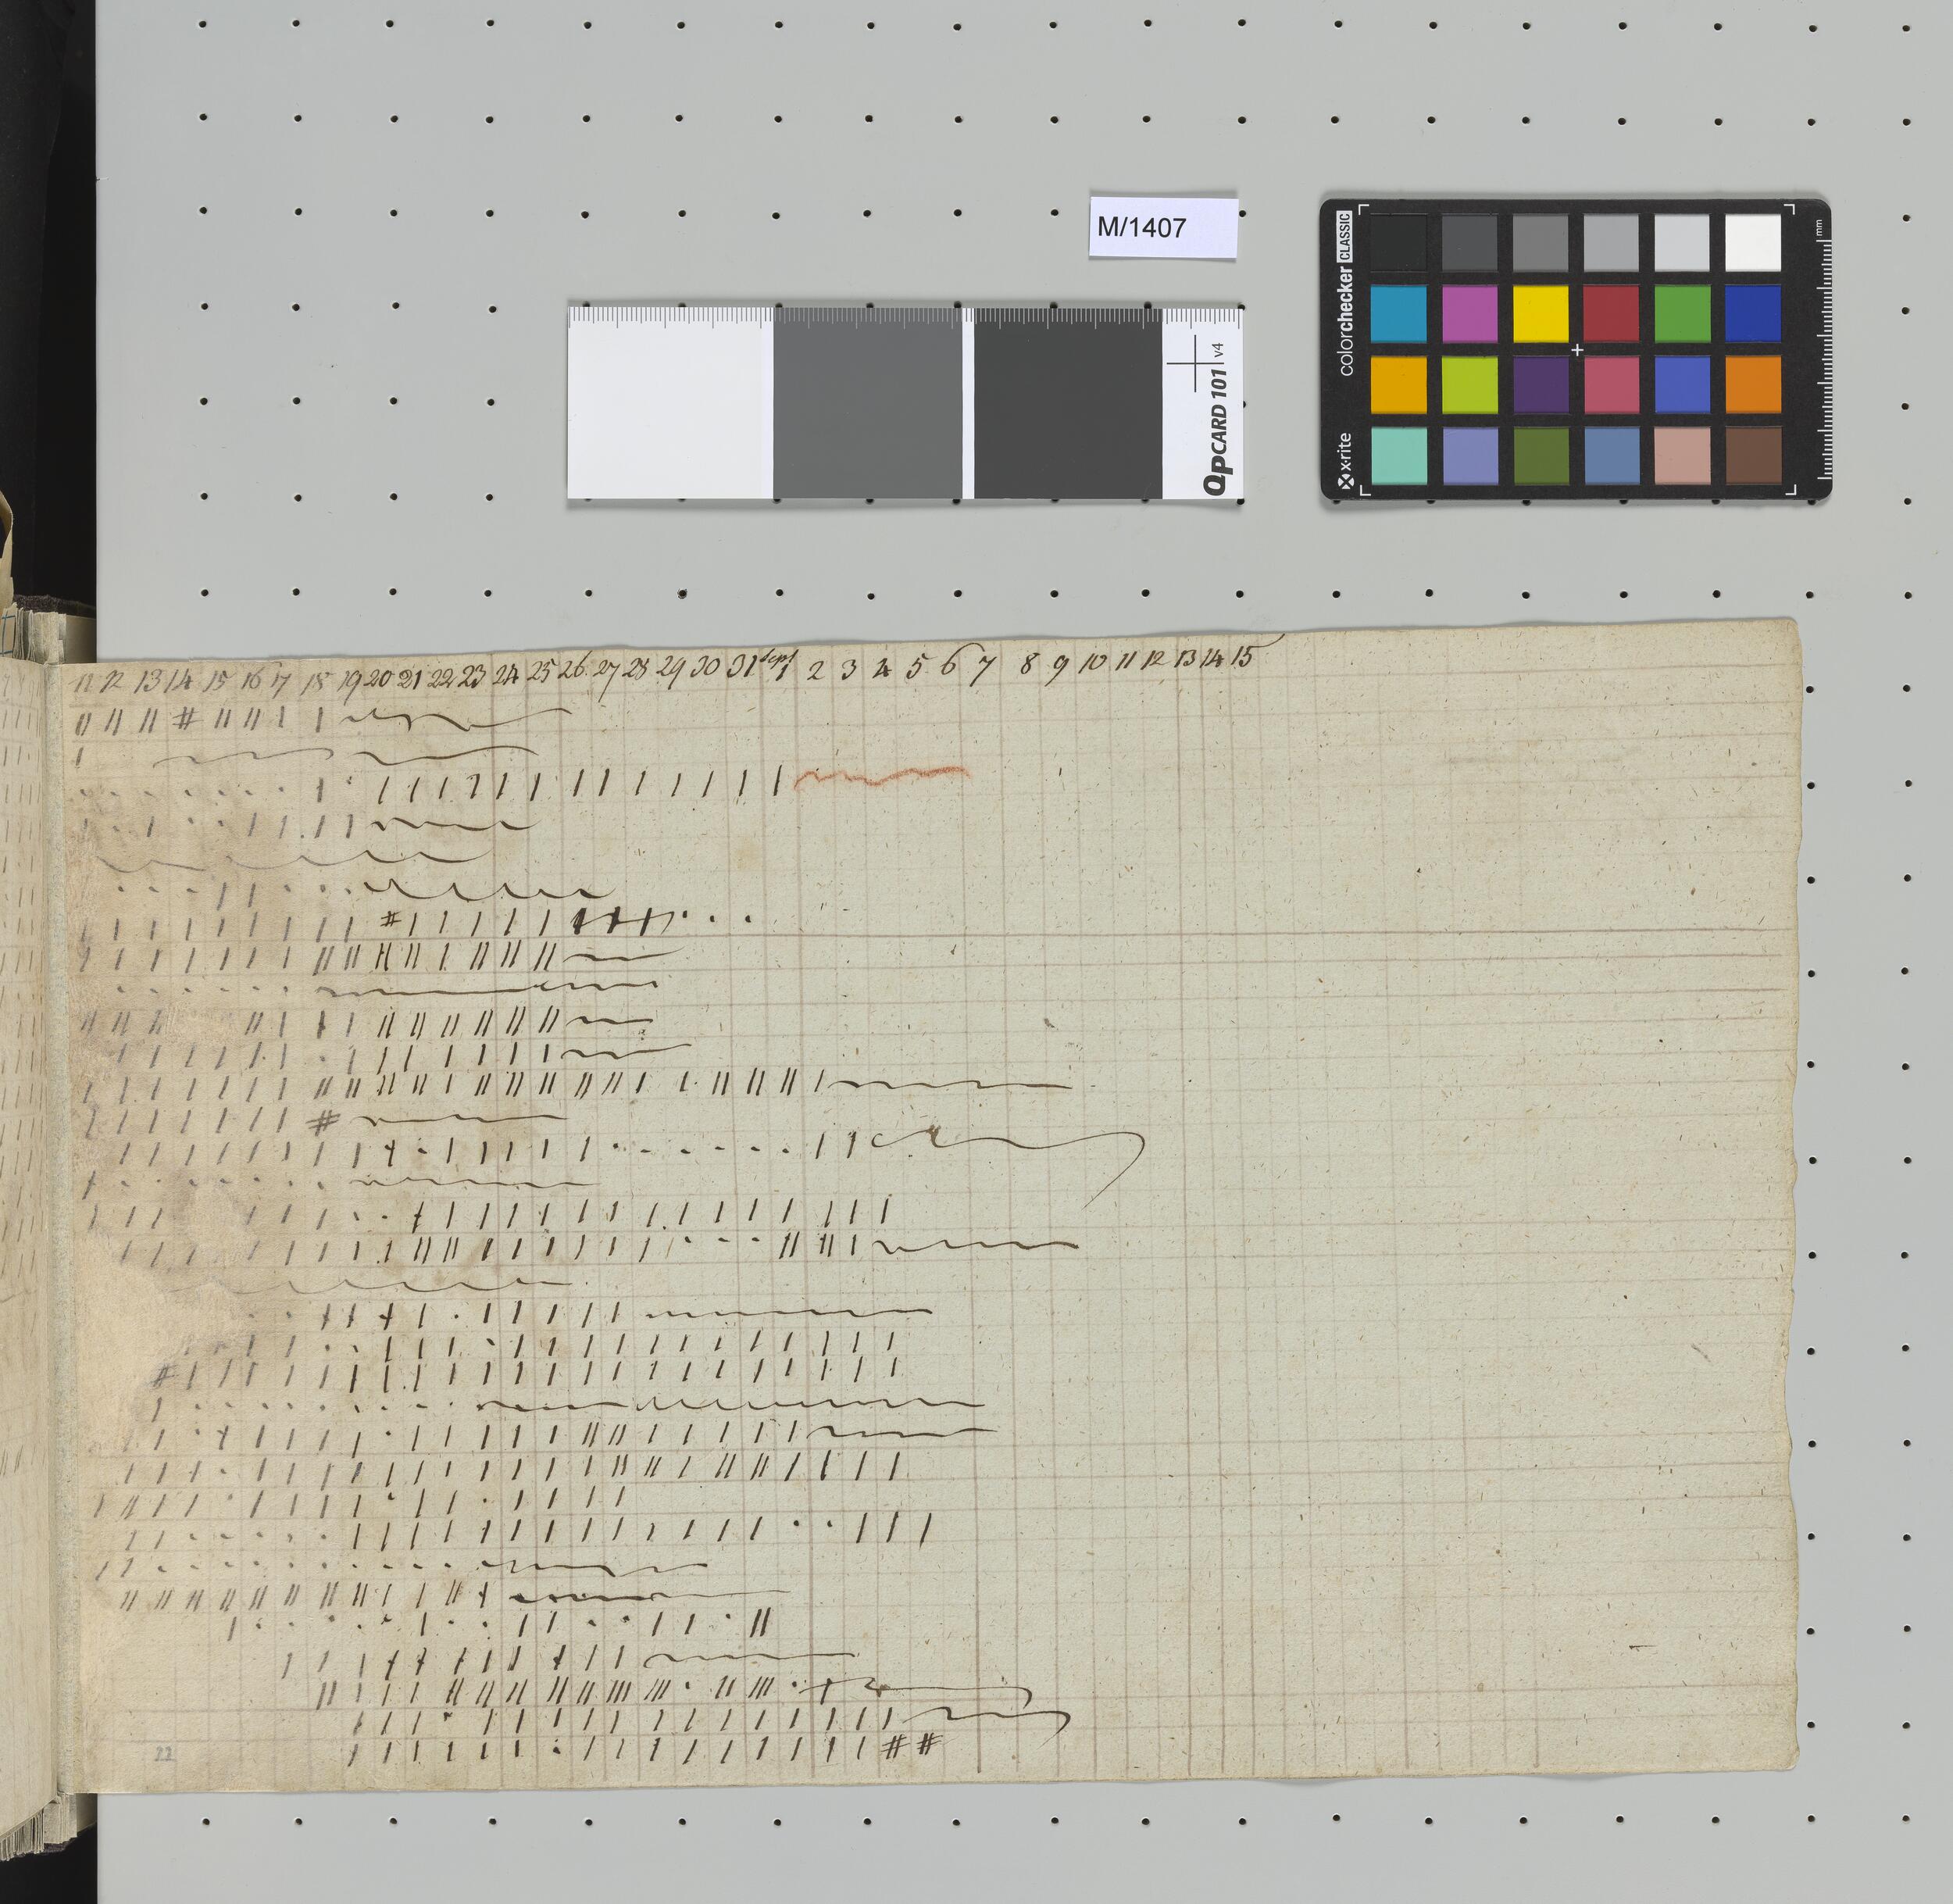 M/1407
colorchecker CLASSIC
x-rite
mm
QPCARD 101 v4
11 12 13 14 15 16 17 18 19 20 21 22 23 24 25 26 27 28 29 30 31 sept 1 2 3 4 5 6 7 8 9 10 11 12 13 14 15
22